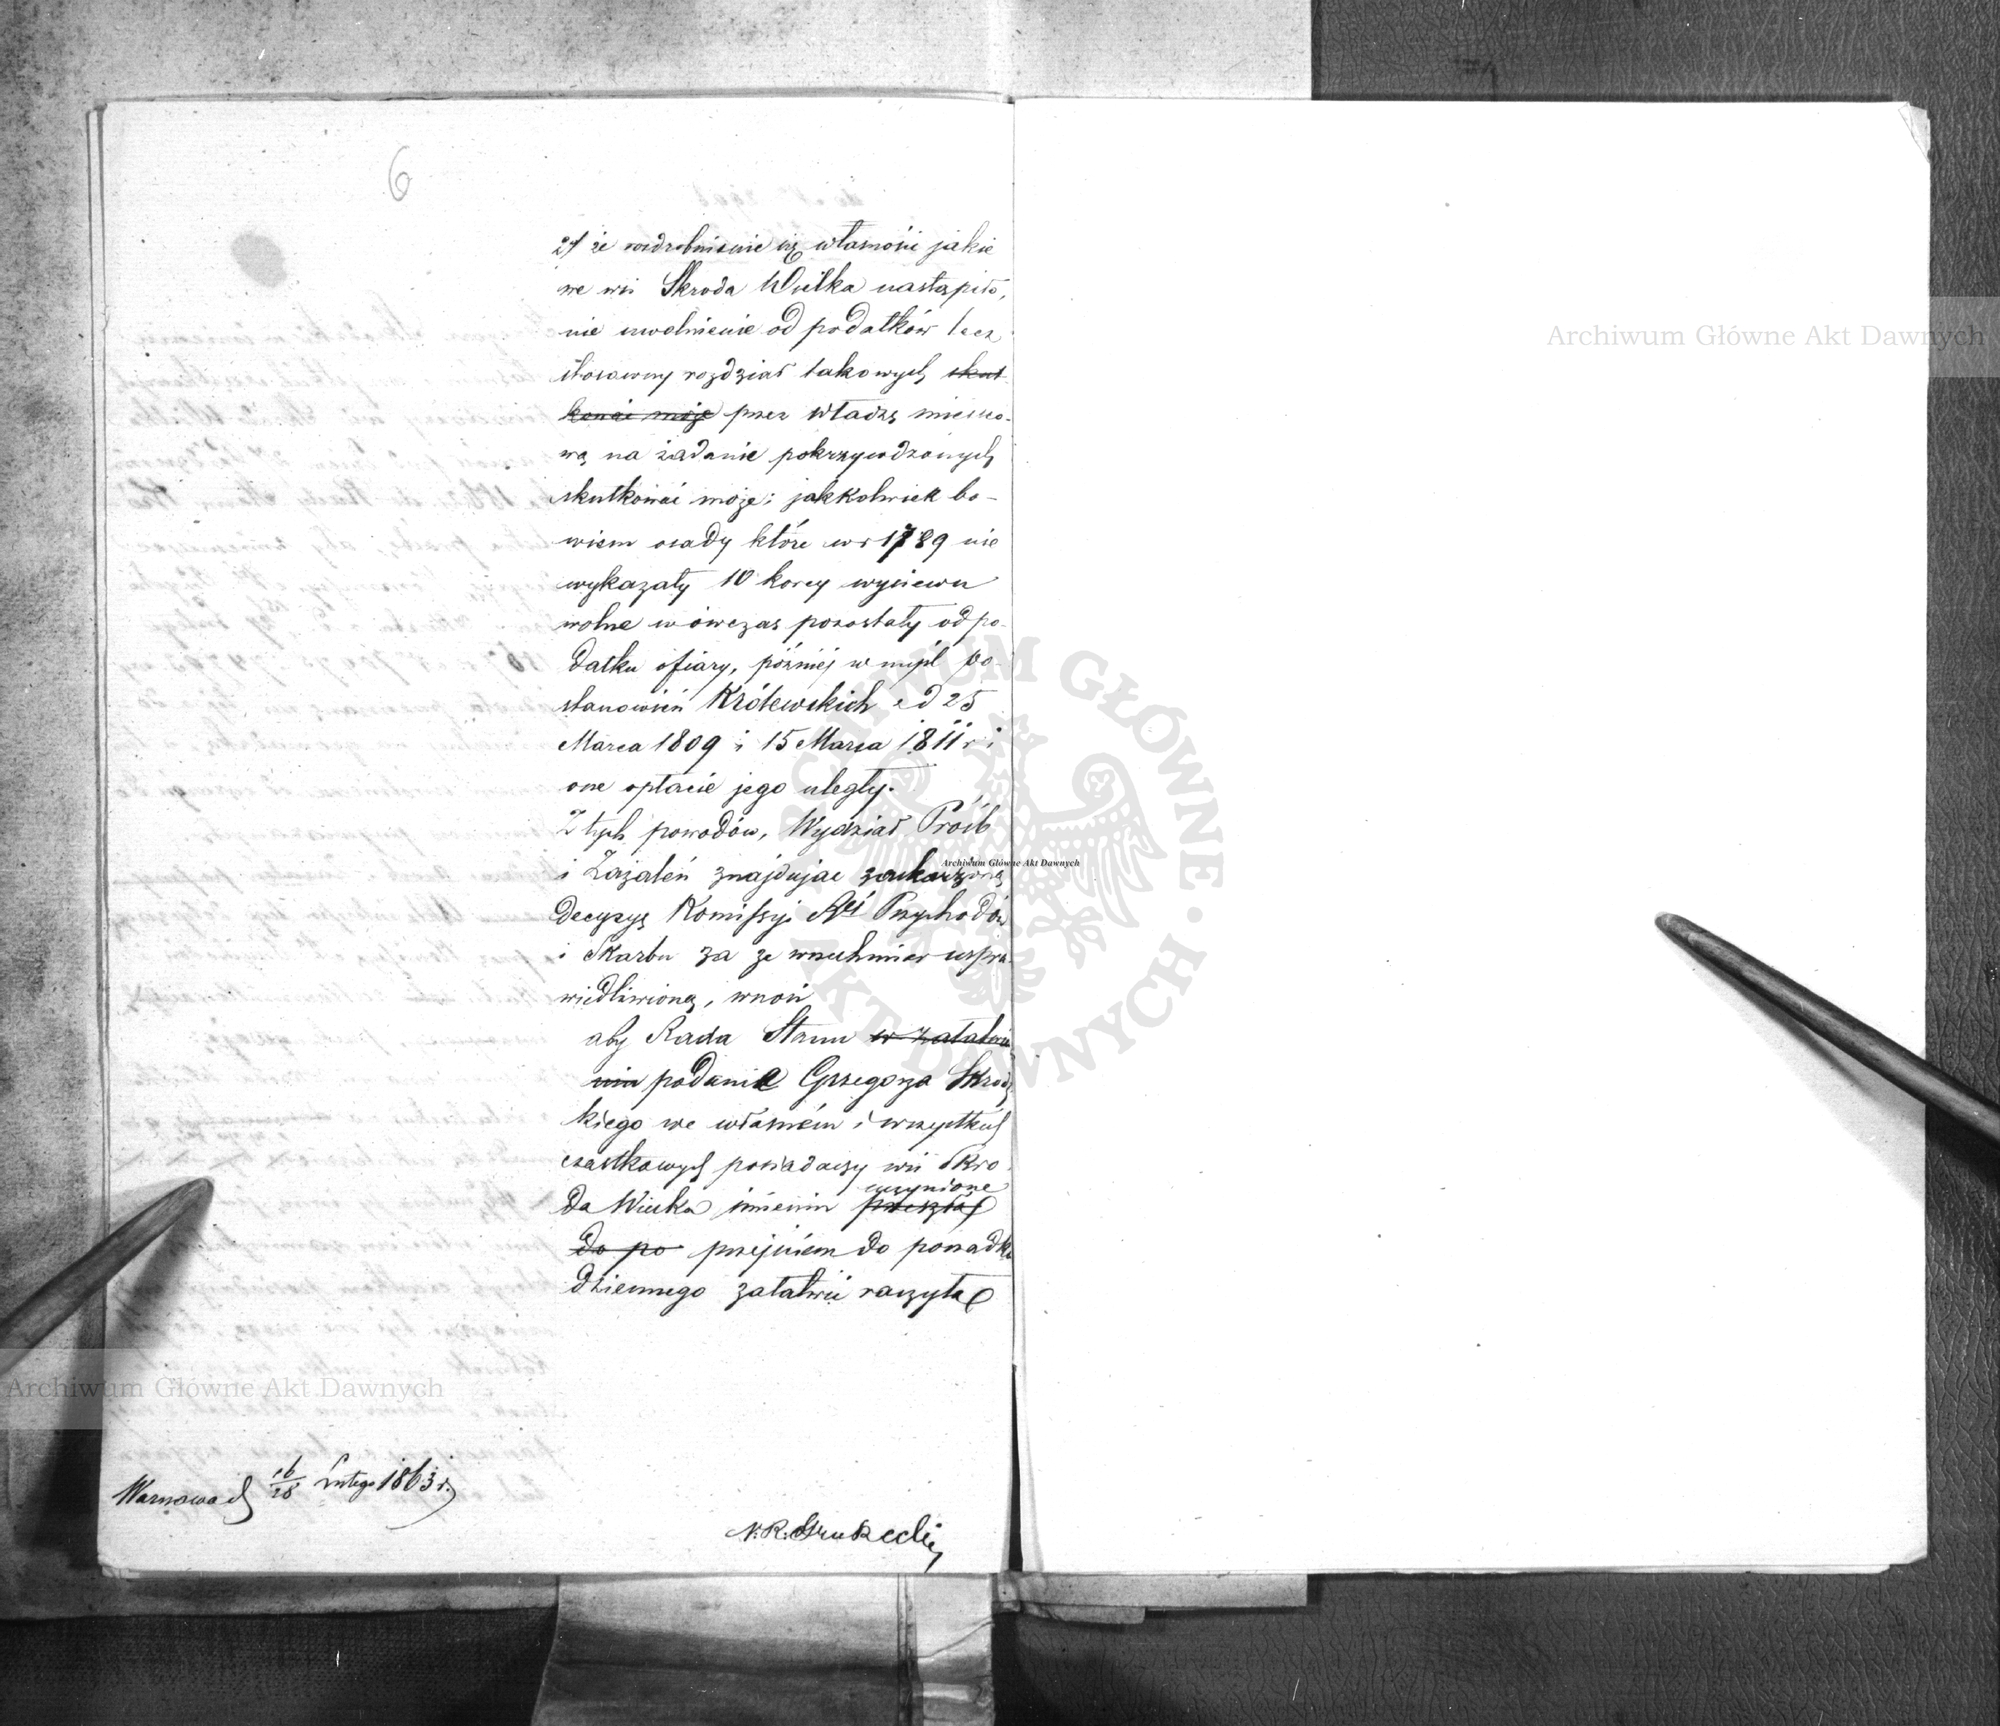 6
2/ że rozdrobnienie się własności jakie
we wsi Skroda Wielka nastąpiło,
nie uwolnienie od podatków lecz
stosowny rozdział takowych skut-
kować może przez władzę miejsco-
wą na żądanie pokrzywdzonych
skutkować może; jakkolwiek bo-
wiem osady które w r 1789 nie
wykazały 10 korcy wysiewu
wolne wówczas pozostały od po-
datku ofiary, później w myśl po-
stanowień Królewskich z d 25
Marca 1809 i 15 Marca 1811 r i
one opłacie jego uległy.
Z tych powodów, Wydział Próśb
i Zażaleń znajdując zaskarżoną
decyzyę Komissyi Rei Przychodów
i Skarbu za ze wszechmiar uspra-
wiedliwioną, wnosi
aby Rada Stanu w załatwie
niu podanie Grzegorza Skrodz
kiego we własném i wszystkich
cząstkowych posiadaczy wsi Skro-
uczynione
da Wielka imieniu przeszła
do po przejściem do porządku
dziennego załatwić raczyła
Warszawa d 16/28 Lutego 1863 r.
Archiwum Główne Akt Dawnych
Archiwum Główne Akt Dawnych
Archiwum Główne Akt Dawnych
ARCHIWUM GŁÓWNE AKT DAWNYCH